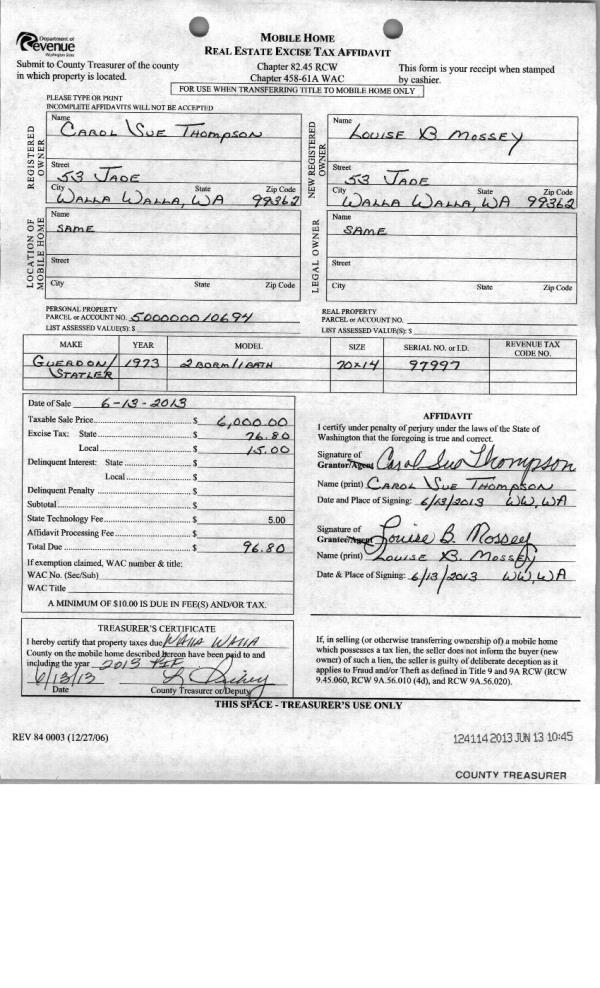 Department of
Revenue
Washington State
MOBILE HOME
REAL ESTATE EXCISE TAX AFFIDAVIT
Submit to County Treasurer of the county
in which property is located.
Chapter 82.45 RCW
Chapter 458-61A WAC
This form is your receipt when stamped
by cashier.
FOR USE WHEN TRANSFERRING TITLE TO MOBILE HOME ONLY
PLEASE TYPE OR PRINT
INCOMPLETE AFFIDAVITS WILL NOT BE ACCEPTED
REGISTERED OWNER
Name
CAROL SUE THOMPSON
Street
53 JADE
City State Zip Code
WALLA WALLA, WA 99362
NEW REGISTERED OWNER
Name
LOUISE B MOSSEY
Street
53 JADE
City State Zip Code
WALLA WALLA, WA 99362
LOCATION OF MOBILE HOME
Name
SAME
Street
City State Zip Code
LEGAL OWNER
Name
SAME
Street
City State Zip Code
PERSONAL PROPERTY
PARCEL or ACCOUNT NO. 500000010694
LIST ASSESSED VALUE(S): $
REAL PROPERTY
PARCEL or ACCOUNT NO.
LIST ASSESSED VALUE(S): $
MAKE YEAR MODEL SIZE SERIAL NO. or I.D. REVENUE TAX CODE NO.
GUERDON/ 1973 2 BDRM/1 BATH 70x14 97997
STATLER
Date of Sale 6-13-2013
Taxable Sale Price $ 6,000.00
Excise Tax: State $ 76.80
Local $ 15.00
Delinquent Interest: State $
Local $
Delinquent Penalty $
Subtotal $
State Technology Fee $ 5.00
Affidavit Processing Fee $
Total Due $ 96.80
If exemption claimed, WAC number & title:
WAC No. (Sec/Sub)
WAC Title
A MINIMUM OF $10.00 IS DUE IN FEE(S) AND/OR TAX.
AFFIDAVIT
I certify under penalty of perjury under the laws of the State of
Washington that the foregoing is true and correct.
Signature of
Grantor/Agent Carol Sue Thompson
Name (print) CAROL SUE THOMPSON
Date and Place of Signing: 6/13/2013 WW, WA
Signature of
Grantee/Agent Louise B. Mossey
Name (print) LOUISE B. MOSSEY
Date & Place of Signing: 6/13/2013 WW, WA
TREASURER'S CERTIFICATE
I hereby certify that property taxes due Walla Walla
County on the mobile home described hereon have been paid to and
including the year 2013
6/13/13
Date County Treasurer or Deputy
If, in selling (or otherwise transferring ownership of) a mobile home
which possesses a tax lien, the seller does not inform the buyer (new
owner) of such a lien, the seller is guilty of deliberate deception as it
applies to Fraud and/or Theft as defined in Title 9 and 9A RCW (RCW
9.45.060, RCW 9A.56.010 (4d), and RCW 9A.56.020).
THIS SPACE - TREASURER'S USE ONLY
REV 84 0003 (12/27/06)
124114 2013 JUN 13 10:45
COUNTY TREASURER